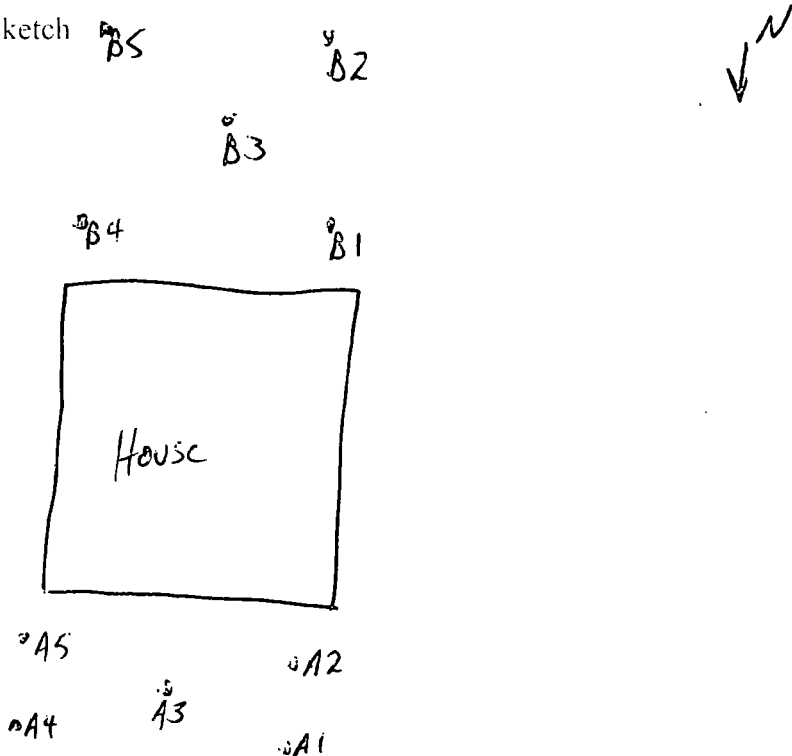 ketch B5 B2 N
B3
B4 B1
House
A5 A2
A4 A3 A1